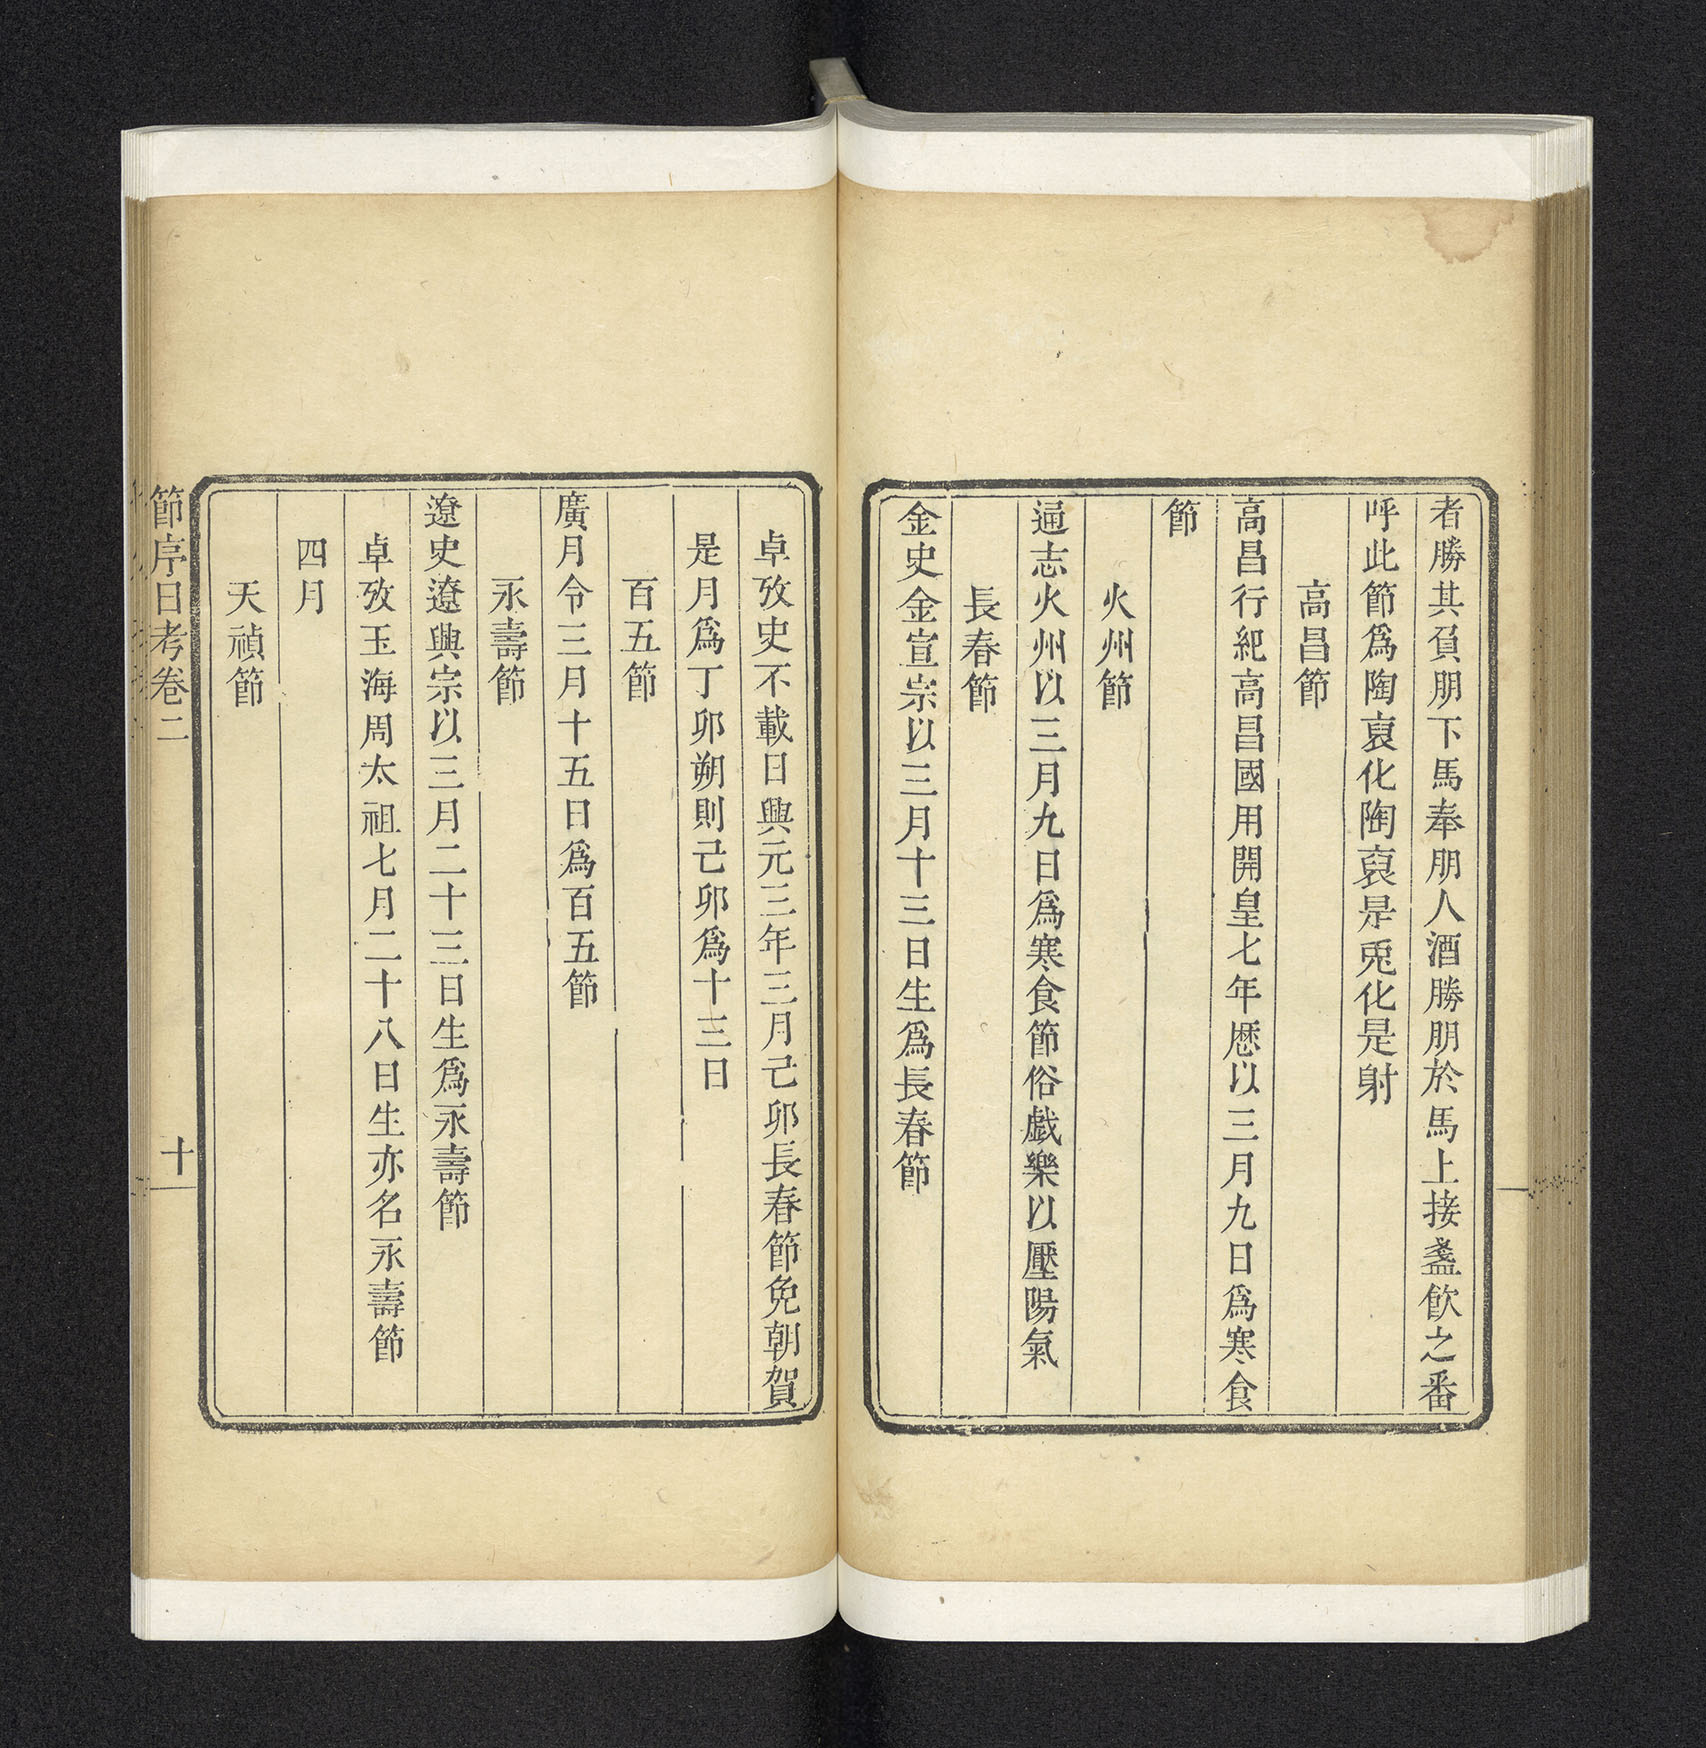 者勝其負朋下馬奉朋人酒勝朋於馬上接盞飲之番
呼此節爲陶裏化陶裏是兎化是射
高昌節
高昌行紀高昌國用開皇七年歷以三月九日爲寒食
節
火州節
通志火州以三月九日爲寒食節俗戲樂以壓陽氣
長春節
金史金宣宗以三月十三日生爲長春節
卓攷史不載日興元三年三月己卯長春節免朝賀
是月爲丁卯朔則己卯爲十三日
百五節
廣月令三月十五日爲百五節
永壽節
遼史遼興宗以三月二十三日生爲永壽節
卓攷玉海周太祖七月二十八日生亦名永壽節
四月
天禎節
節序日考卷二
十